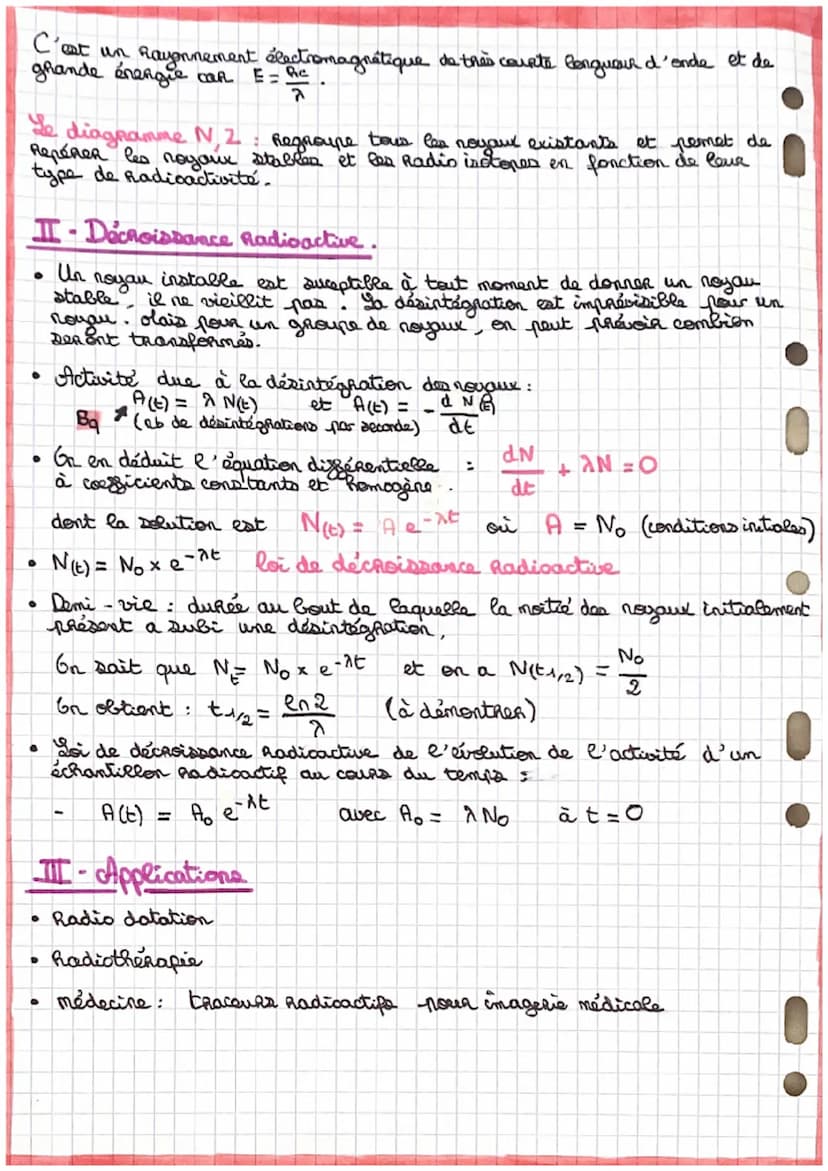 C'est un Rayonnement électromagnétique de très courte longueur d'onde et de
grande énergie car E = hc/λ .
Le diagramme N,Z : Regroupe tous les noyaux existants et permet de
Repérer les noyaux stables et les Radio isotopes en fonction de leur
type de Radioactivité.
II - Décroissance Radioactive .
• Un noyau instable est suceptible à tout moment de donner un noyau
stable, il ne vieillit pas . La désintégration est imprévisible pour un
noyau . Mais pour un groupe de noyaux, on peut prévoir combien
seront transformés.
• Activité due à la désintégration des noyaux :
A(t) = λ N(t) et A(t) = - d N(t)/dt
Bq (nb de désintégrations par seconde)
• On en déduit l'équation différentielle : dN/dt + λN = 0
à coefficients constants et homogène .
dont la solution est N(t) = A e^-λt où A = N₀ (conditions initiales)
• N(t) = N₀ x e^-λt loi de décroissance Radioactive
• Demi - vie : durée au bout de laquelle la moitié des noyaux initialement
présent a subi une désintégration,
On sait que N_t = N₀ x e^-λt et on a N(t1/2) = N₀/2
On obtient : t1/2 = ln2/λ (à démontrer)
• Loi de décroissance radioactive de l'évolution de l'activité d'un
échantillon radioactif au cours du temps :
- A(t) = A₀ e^-λt avec A₀ = λ N₀ à t = 0
III - Applications
• Radio datation
• Radiothérapie
• médecine : traceurs radioactifs pour imagerie médicale